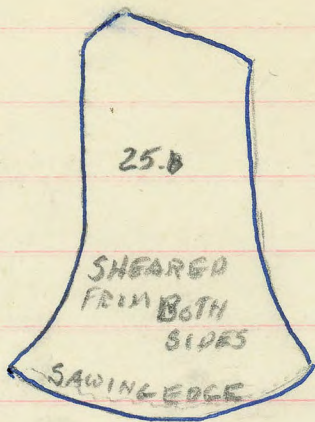 25.B
SHEARED
FROM BOTH
SIDES
SAWING EDGE